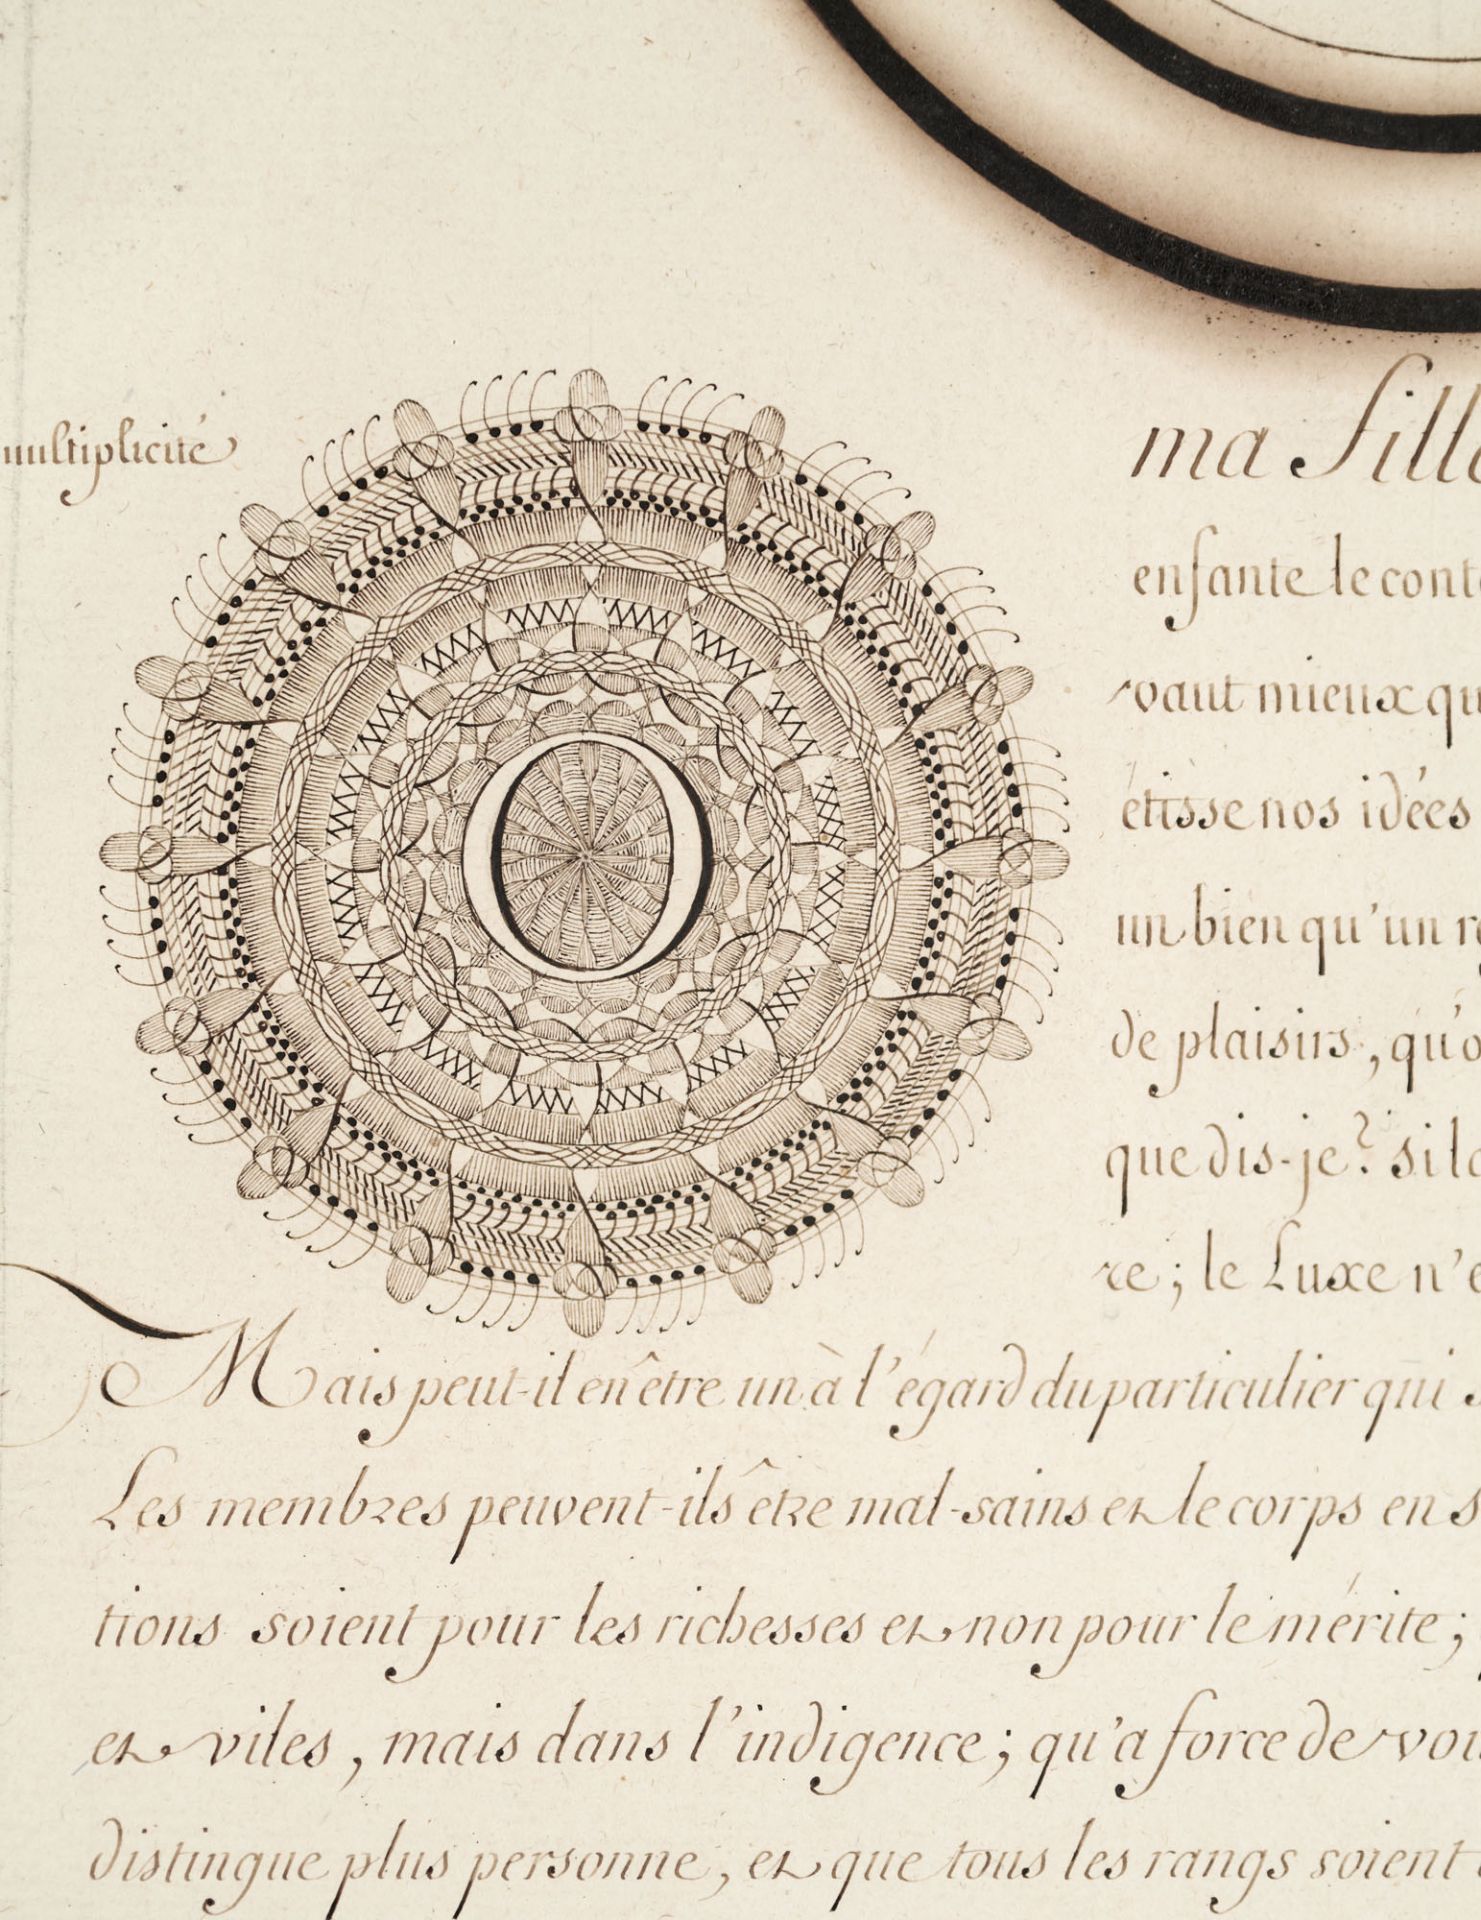 multiplicité
O ma fille
enfante le cont
vaut mieux qu
étisse nos idées
un bien qu'un r
de plaisirs, qu'o
que dis-je? si la
re; le Luxe n'e
Mais peut-il en être un à l'égard du particulier qui s
Les membres peuvent-ils être mal-sains et le corps en s
tions soient pour les richesses et non pour le mérite;
et viles, mais dans l'indigence; qu'a force de voi
distingue plus personne, et que tous les rangs soient